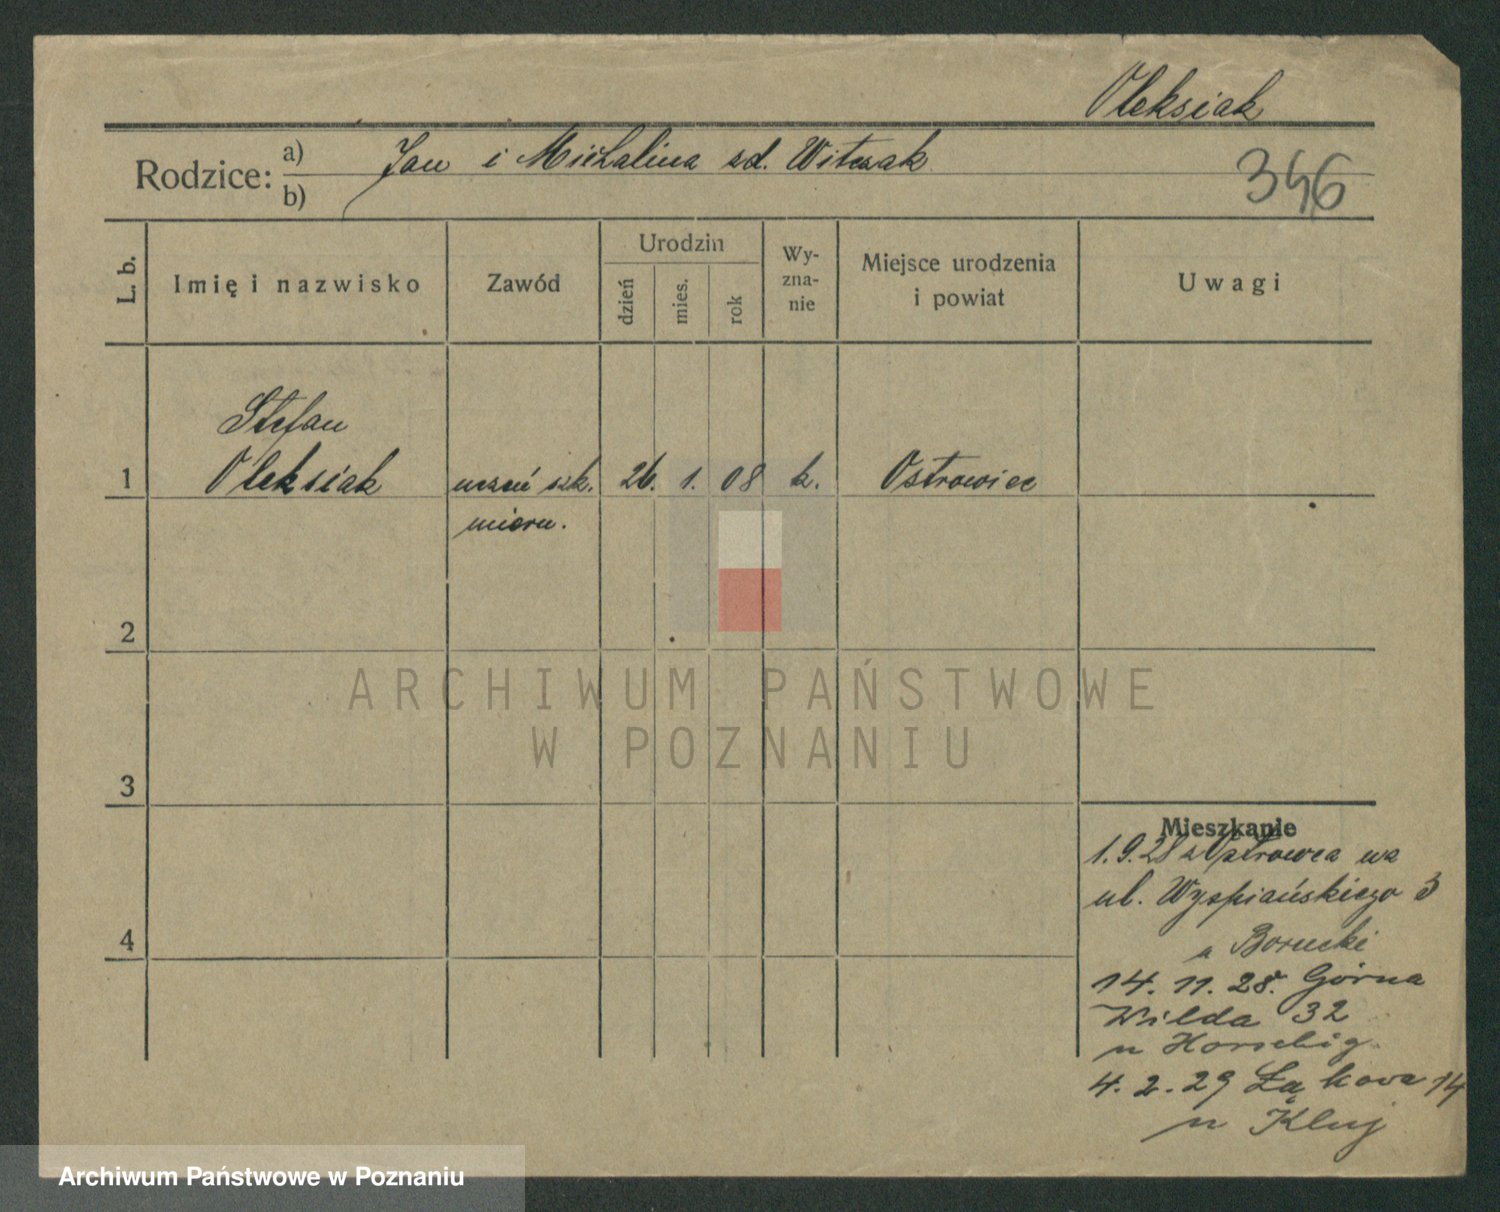 Oleksiak
Rodzice: a) b)
Jan i Michalina zd. Witczak
346
L. b.
Imię i nazwisko
Zawód
Urodzin
dzień
mies.
rok
Wy-
zna-
nie
Miejsce urodzenia
i powiat
Uwagi
Stefan
1 Oleksiak uczeń szk. 26. 1. 08 k. Ostrowiec
miern.
2
3
4
Mieszkanie
1.9.28 z Ostrowca na
ul. Wyspiańskiego 3
u Borucki
14. 11. 28. Górna
Wilda 32
u
4. 2. 29 Łąkowa 14
u Kluj
ARCHIWUM PAŃSTWOWE
W POZNANIU
Archiwum Państwowe w Poznaniu